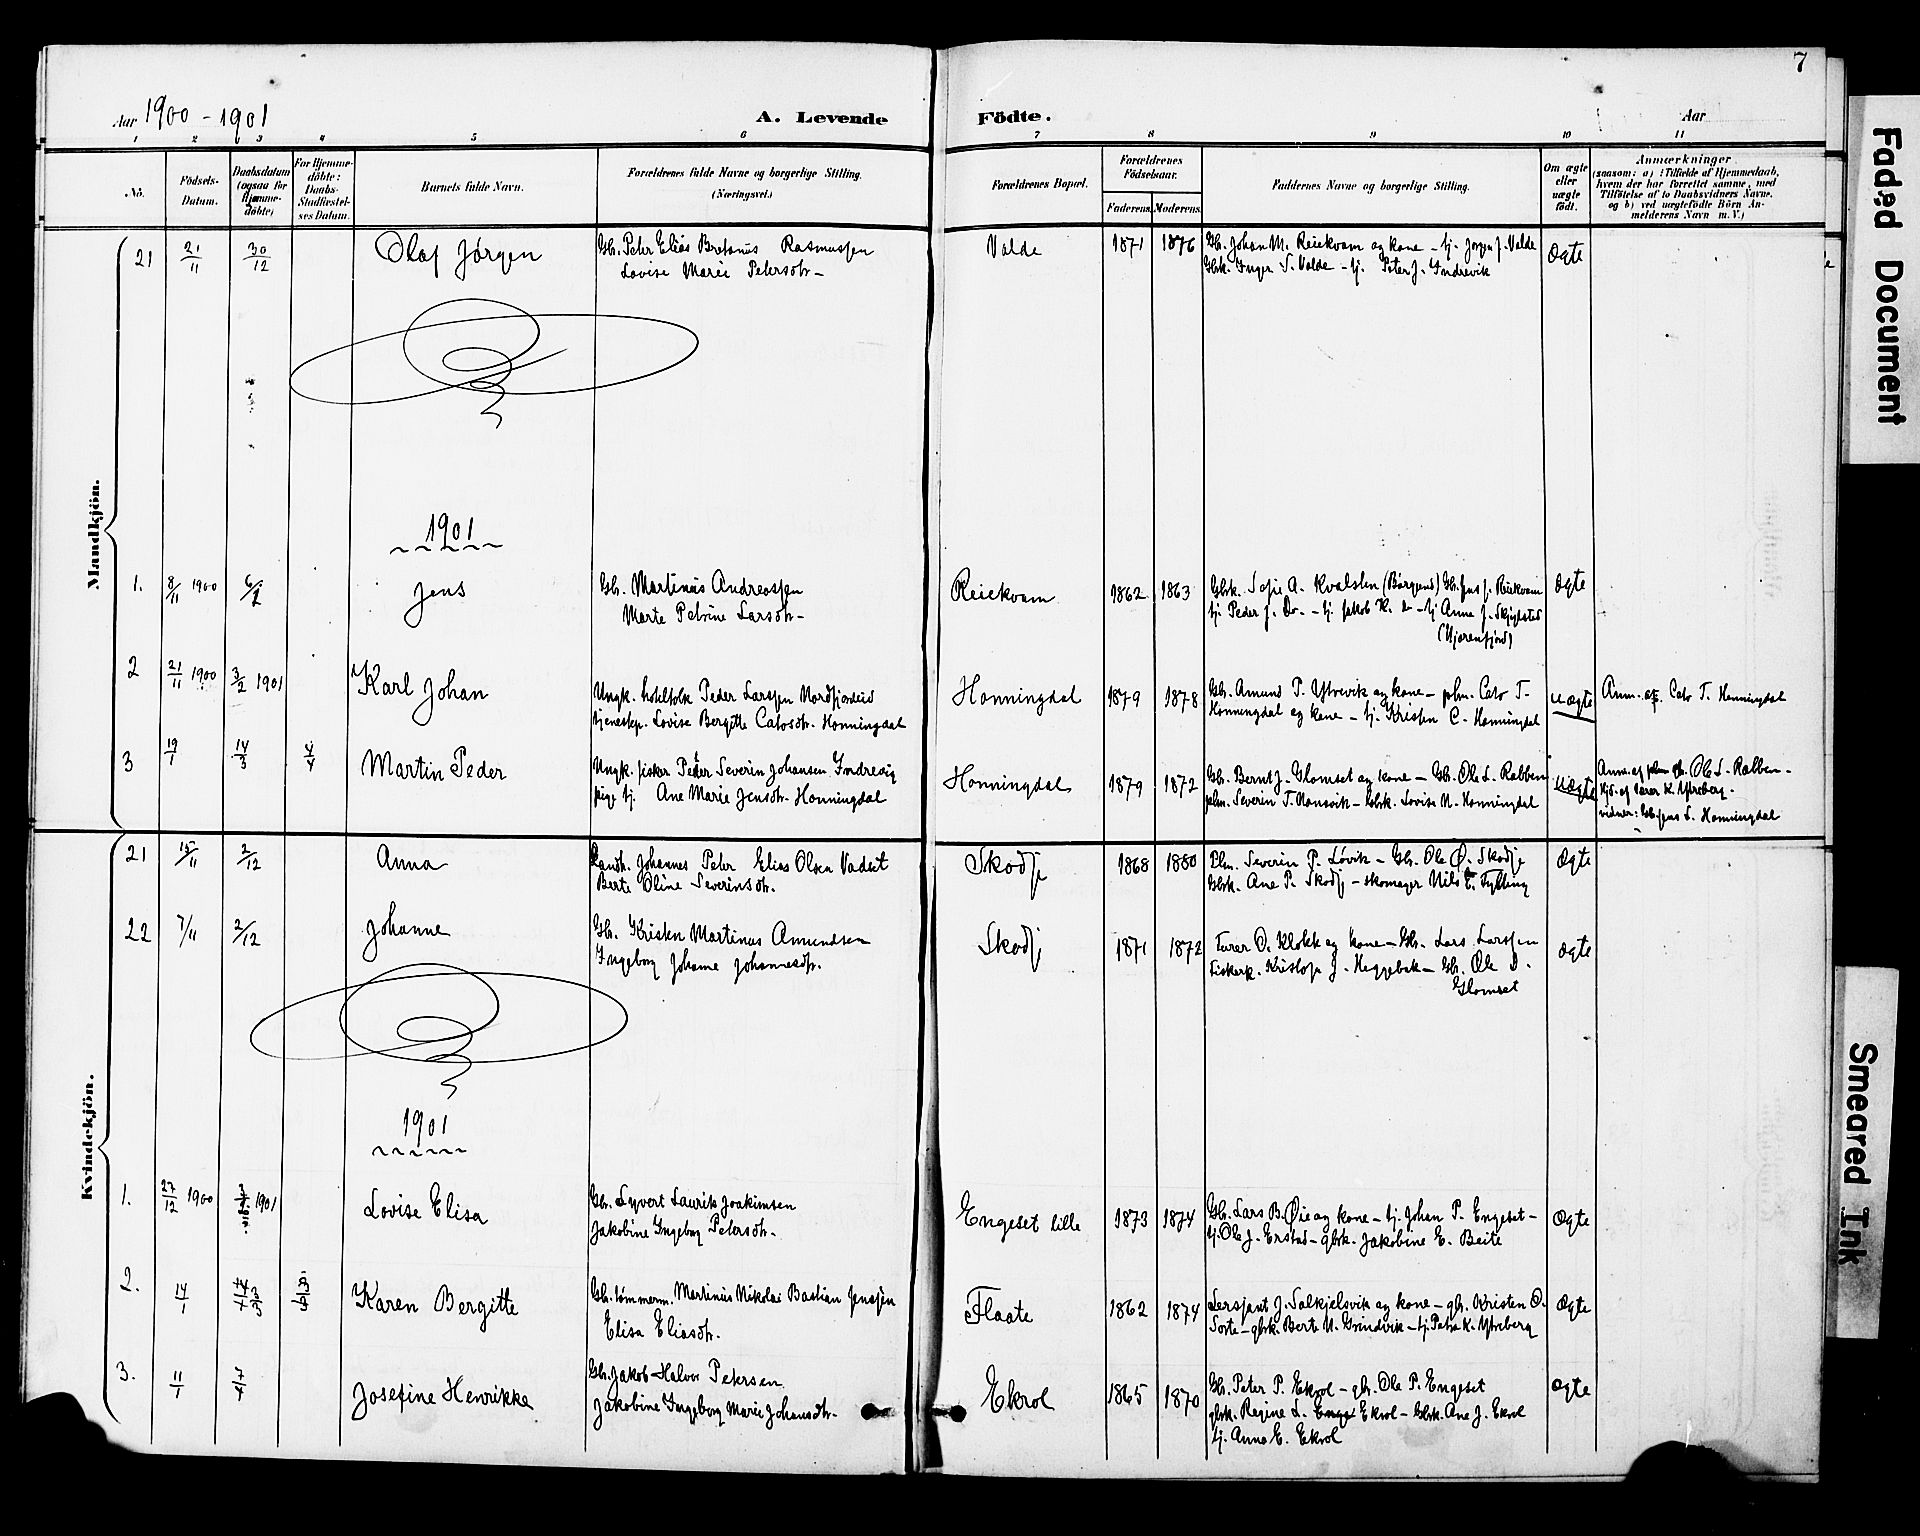 7
Aar 1900 - 1901
A. Levende Födte.
Aar
1 2 3 4 5 6 7 8 9 10 11
No.
Födsels-Datum.
Daabsdatum (ogsaa for Hjemme-döbte)
For Hjemme-döbte: Daabs-Stadfæstel-ses Datum.
Barnets fulde Navn.
Forældrenes fulde Navne og borgerlige Stilling.
(Næringsvei.)
Forældrenes Bopæl.
Forældrenes Födselsaar.
Faderens. Moderens.
Faddernes Navne og borgerlige Stilling.
Om ægte eller uægte födt.
Anmærkninger
(saasom: a) i Tilfælde af Hjemmedaab,
hvem der har forrettet samme, med
Tilföielse af to Daabsvidners Navne,
og b) ved uægtefödte Börn An-
melderens Navn m. V.)
Mandkjön.
21 21/11 30/12 Olaf Jørgen
Gbr. Peter Elias Bretanus Rasmussen
Lovise Marie Petersdtr-
Valde 1871 1876
Gbr. Johan M. Reiekvam og kone - tj. Jørgen J. Valde
Gbrk. Inger S. Valde - tj. Peter J. Indrevik
Ægte
1901
1. 8/11 1900 6/2 Jens
Gbr. Martinus Andreassen
Marte Petrine Larsdtr-
Reiekvam 1862 1863
Gbrk. Sofie A. Kvalsten (Borgund) Gbr. Jens J. Reiekvam
tj. Peder J. Do. - tj. Jakob K. do - tj Anna J. Skjeylsted
(Hjørenfjord)
Ægte
2 21/11 1900 3/2 1901 Karl Johan
Ungk. hotelfolk Peder Larssen Nordfjordeid
tjenestep. Lovise Bergitte Catosdtr. Honningdal
Honningdal 1879 1878
Gbr. Amund P. Ytrevik og kone - plm. Cato T-
Honningdal og kone - tj. Kristen C. Honningdal
uægte
Anm. af. Cato T. Honningdal
3 19/1 14/3 4/4 Martin Peder
Ungk. fisker Peder Severin Johansen Indrevig
pige tj. Ane Marie Jensdtr. Honningdal
Honningdal 1879 1872
Gbr. Bernt J. Glomset og kone - Gbr. Ole L. Rabben
plm. Severin T. Honsvik - Gbrk. Lovise N. Honningdal
Uægte
Anm. af Ole L. Rabben-
Hjd. af lærer K. Ytreberg-
vidner: Gbr Jens L. Honningdal
Kvindekjön.
21 15/11 2/12 Anna
Landh. Johannes Peter Elias Olsen Vadset
Berte Oline Severinsdtr.
Skodje 1868 1880
Plm. Severin P. Løvik - Gbr. Ole Ø. Skodje
Gbrk. Ane P. Skodje - skomager Nils E. Fylling
Ægte
22 7/11 2/12 Johanne
Gbr. Kristen Martinus Amundsen
Ingeborg Johanne Johannesdtr.
Skodje 1871 1872
Furer O. Klokk og kone - Gbr. Lars Larssen
Fiskerk. Kristofa J. Heggebak - Gbr. Ole D.
Glomset
Ægte
1901
1. 27/12 1900 1901 Lovise Elisa
Gbr. Syvert Laurits Joakimsen
Jakobine Ingeborg Petersdtr.
Engeset lille 1873 1874
Gbr. Lars B. Øie og kone - tj. Johan P. Engeset-
tj. Ole J. Erstad - gbrk. Jakobine E. Beite
Ægte
2. 14/1 Karen Bergitte
Gbr. tømmerm. Martinus Nikolai Bastian Jenssen
Elisa Eliasdtr.
Flaate 1862 1874
Sersjant J. Solkjelsvik og kone - gbr. Kristen O.
Sorte - gbrk. Berte N. Grindvik - tj. Petra K. Ytreberg
Ægte
3. 11/1 7/4 Josefine Henrikke
Gbr. Jakob Halvor Petersen
Jakobine Ingeborg Marie Johansdtr.
Ekrol 1865 1870
Gbr. Peter P. Ekrol - gbr. Ole P. Engeset
gbrk. Regine L. Ekrol - Gbrk. Ane J. Ekrol
tj. Anna E. Ekrol
Ægte
Faded Document
Smeared Ink